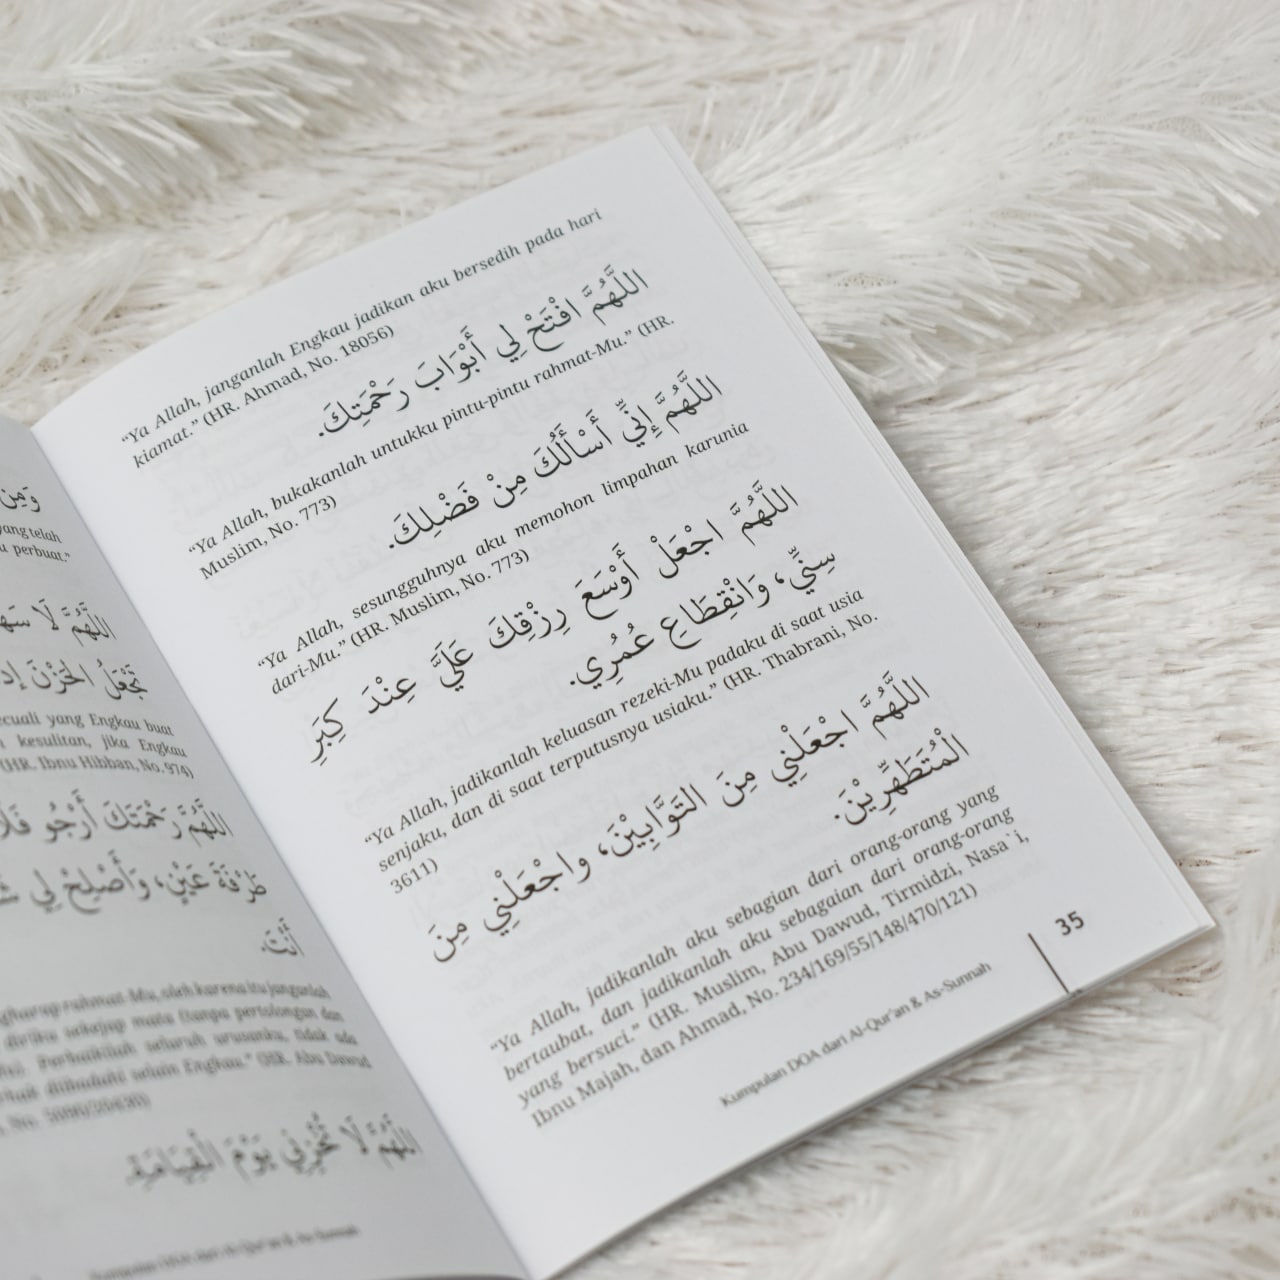 وَمِنْ
yang telah
perbuat."
اللَّهُمَّ لَا
تَجْعَلُ الْحَزْنَ
kecuali yang Engkau buat
kesulitan, jika Engkau
(HR. Ibnu Hibban, No. 974)
اللَّهُمَّ رَحْمَتَكَ أَرْجُو
طَرْفَةَ عَيْنٍ، وَأَصْلِحْ لِي
أَنْتَ.
rahmat-Mu, oleh karena itu janganlah
diriku sekejap mata (tanpa pertolongan dan
Perbaikilah seluruh urusanku, tidak ada
selain Engkau." (HR. Abu Dawud,
اللَّهُمَّ لَا تُخْزِنِي يَوْمَ الْقِيَامَةِ.
"Ya Allah, janganlah Engkau jadikan aku bersedih pada hari
kiamat." (HR. Ahmad, No. 18056)
اللَّهُمَّ افْتَحْ لِي أَبْوَابَ رَحْمَتِكَ.
"Ya Allah, bukakanlah untukku pintu-pintu rahmat-Mu." (HR.
Muslim, No. 773)
اللَّهُمَّ إِنِّي أَسْأَلُكَ مِنْ فَضْلِكَ.
"Ya Allah, sesungguhnya aku memohon limpahan karunia
dari-Mu." (HR. Muslim, No. 773)
اللَّهُمَّ اجْعَلْ أَوْسَعَ رِزْقِكَ عَلَيَّ عِنْدَ كِبَرِ
سِنِّي، وَانْقِطَاعِ عُمُرِي.
"Ya Allah, jadikanlah keluasan rezeki-Mu padaku di saat usia
senjaku, dan di saat terputusnya usiaku." (HR. Thabrani, No.
3611)
اللَّهُمَّ اجْعَلْنِي مِنَ التَوَّابِيْنَ، واجْعَلْنِي مِنَ
الْمُتَطَهِّرِيْنَ.
"Ya Allah, jadikanlah aku sebagian dari orang-orang yang
bertaubat, dan jadikanlah aku sebagaian dari orang-orang
yang bersuci." (HR. Muslim, Abu Dawud, Tirmidzi, Nasa`i,
Ibnu Majah, dan Ahmad, No. 234/169/55/148/470/121)
Kumpulan DOA dari Al-Qur'an & As-Sunnah
35